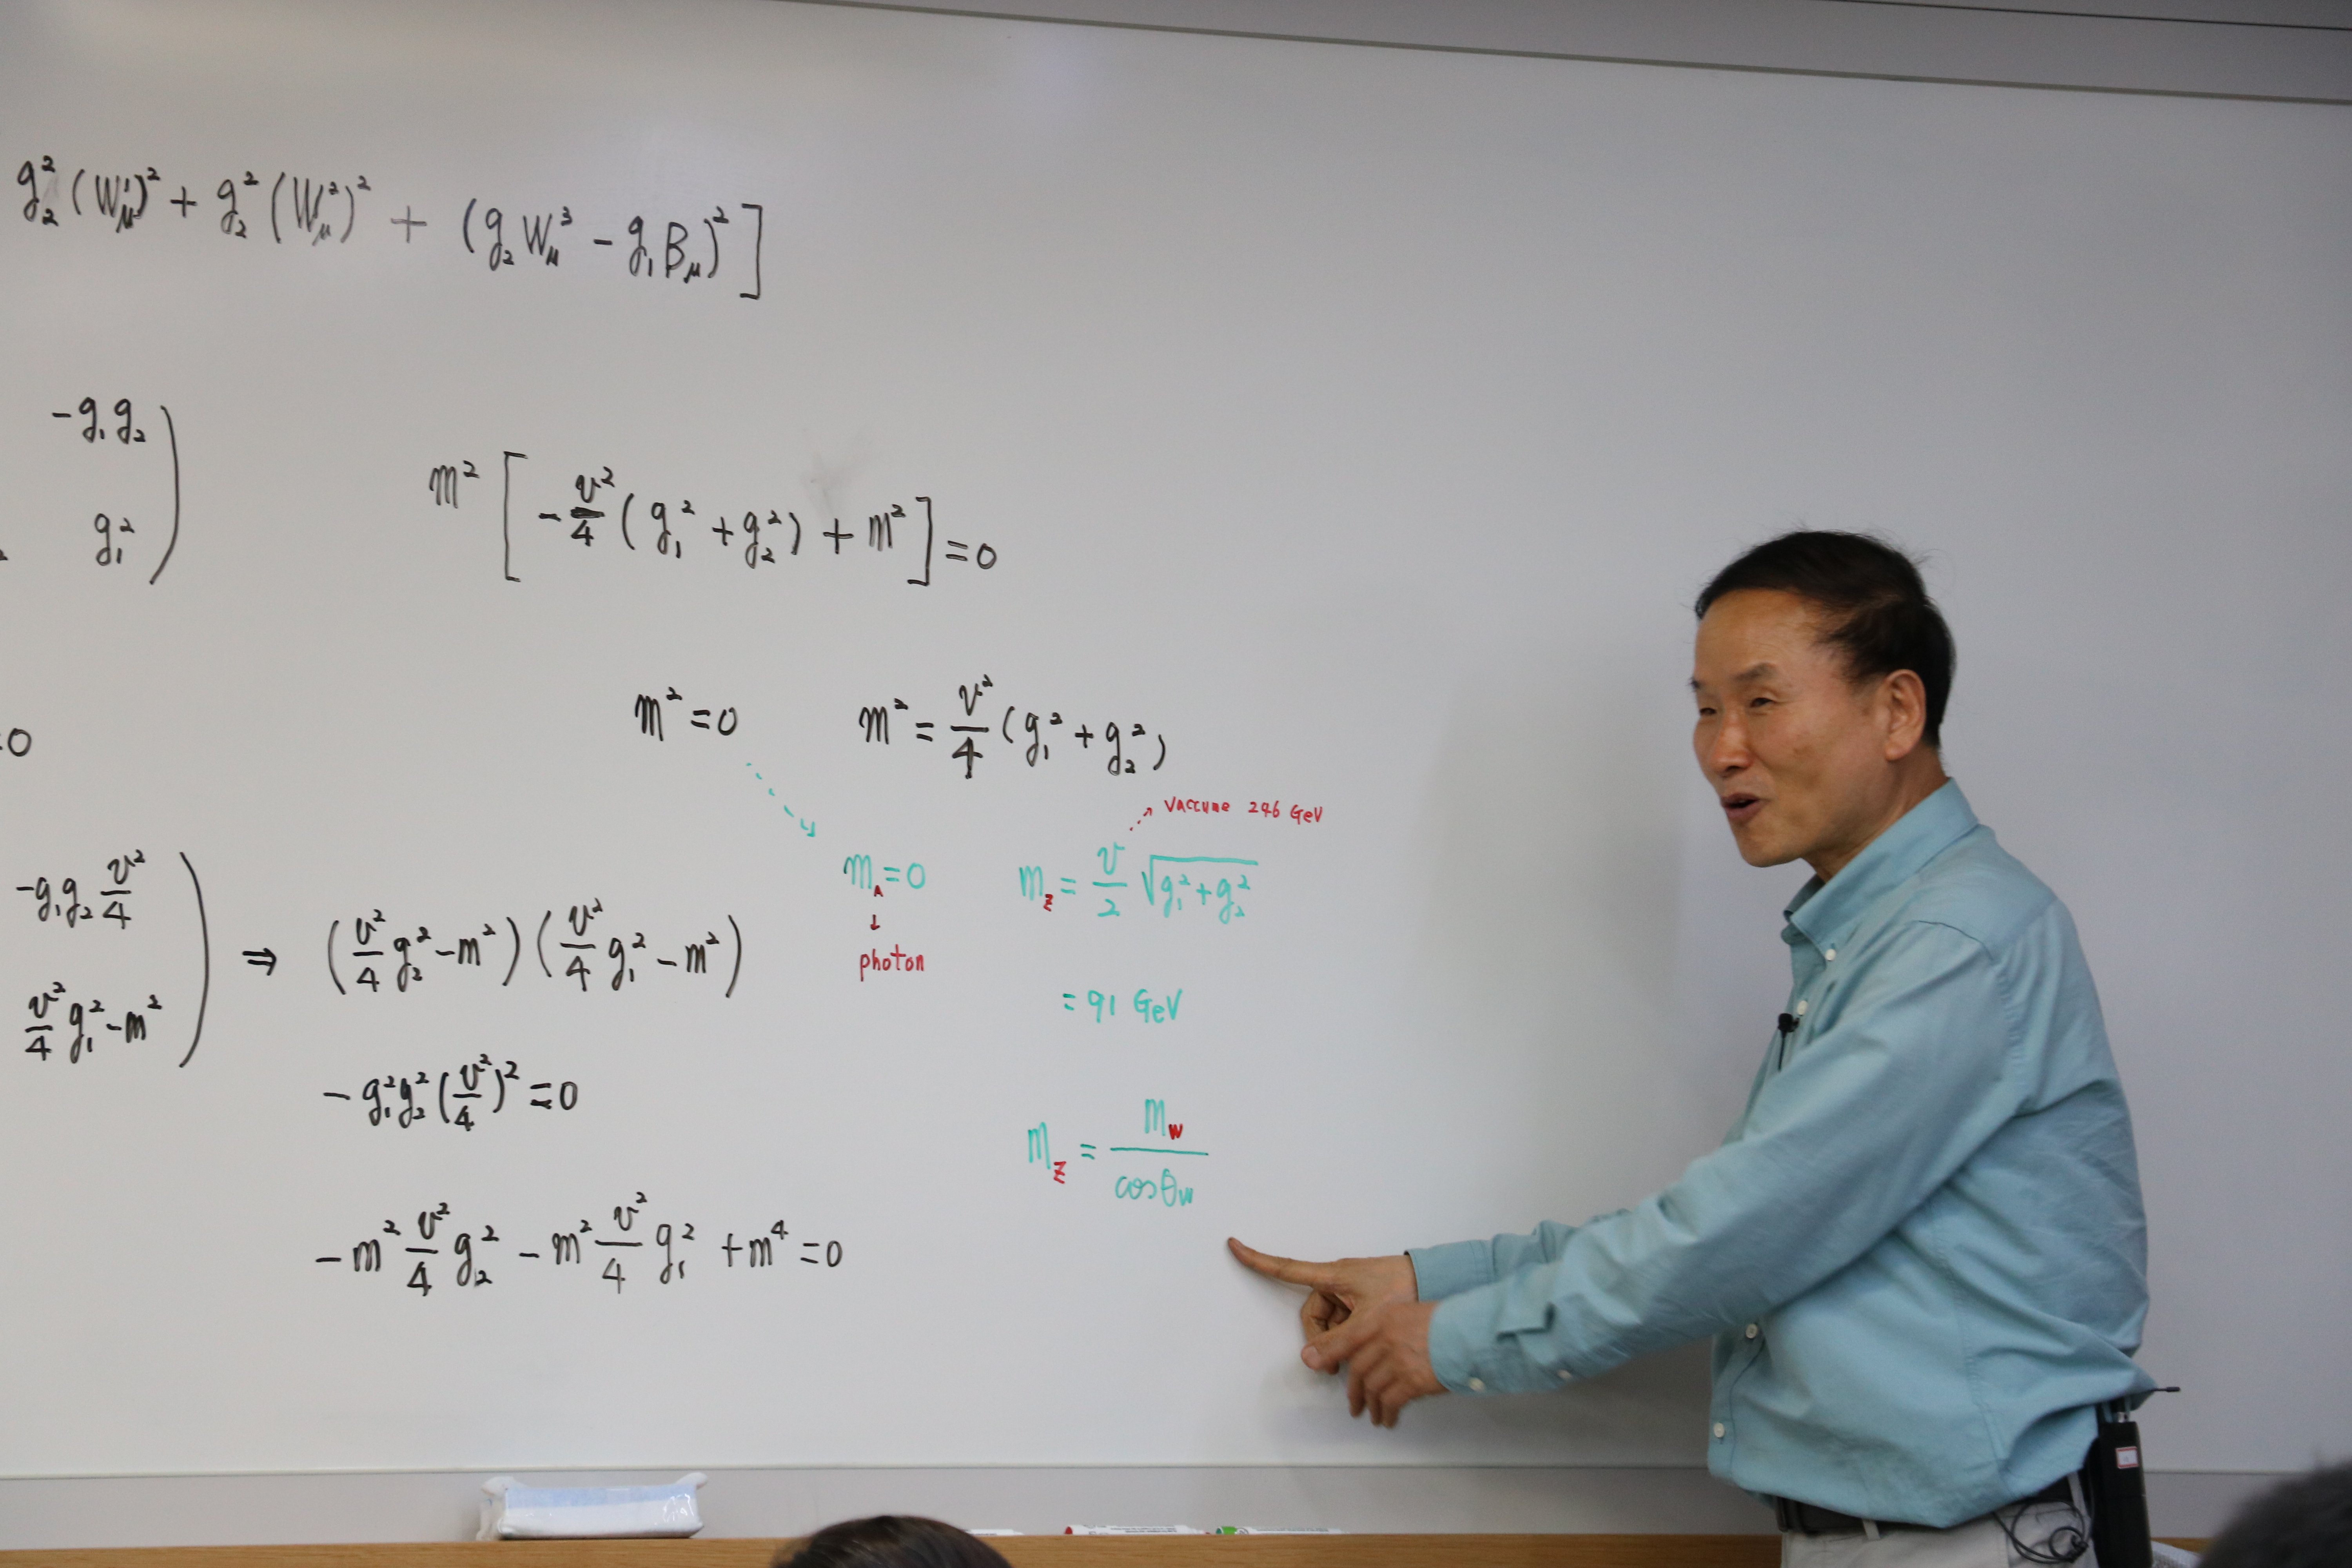 g₂²(W_μ¹)² + g₂²(W_μ²)² + (g₂W_μ³ − g₁B_μ)²]
−g₁g₂
g₁²)
m²[−v²/4(g₁² + g₂²) + m²] = 0
m² = 0 m² = v²/4(g₁² + g₂²)
=0
vaccume 246 GeV
m_A = 0 m_Z = v/2 √(g₁² + g₂²)
↓
photon
−g₁g₂ v²/4
v²/4 g₁² − m²) ⇒ (v²/4 g₂² − m²)(v²/4 g₁² − m²)
= 91 GeV
− g₁²g₂²(v²/4)² = 0
m_Z = m_W/cosθ_W
− m² v²/4 g₂² − m² v²/4 g₁² + m⁴ = 0